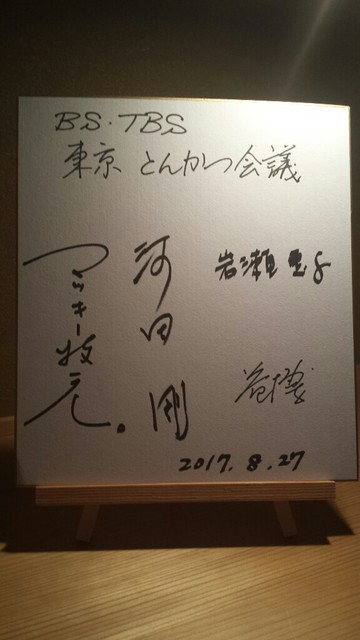 BS・TBS
東京 とんかつ会議
岩瀬惠子
河田 剛
マッキー牧元。
2017.8.27